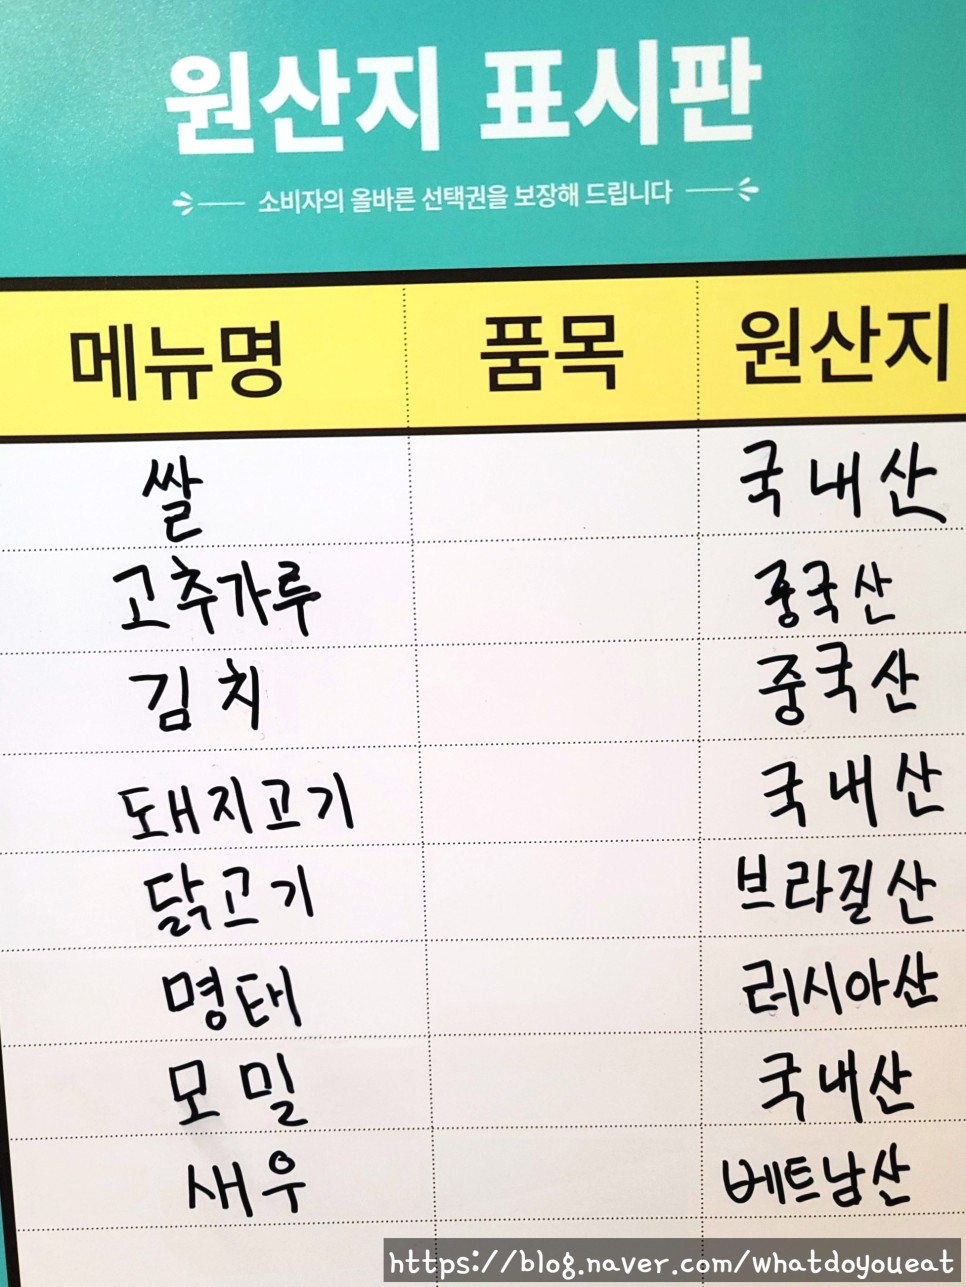 원산지 표시판
소비자의 올바른 선택권을 보장해 드립니다
메뉴명 품목 원산지
쌀 국내산
고추가루 중국산
김치 중국산
돼지고기 국내산
닭고기 브라질산
명태 러시아산
모밀 국내산
새우 베트남산
https://blog.naver.com/whatdoyoueat